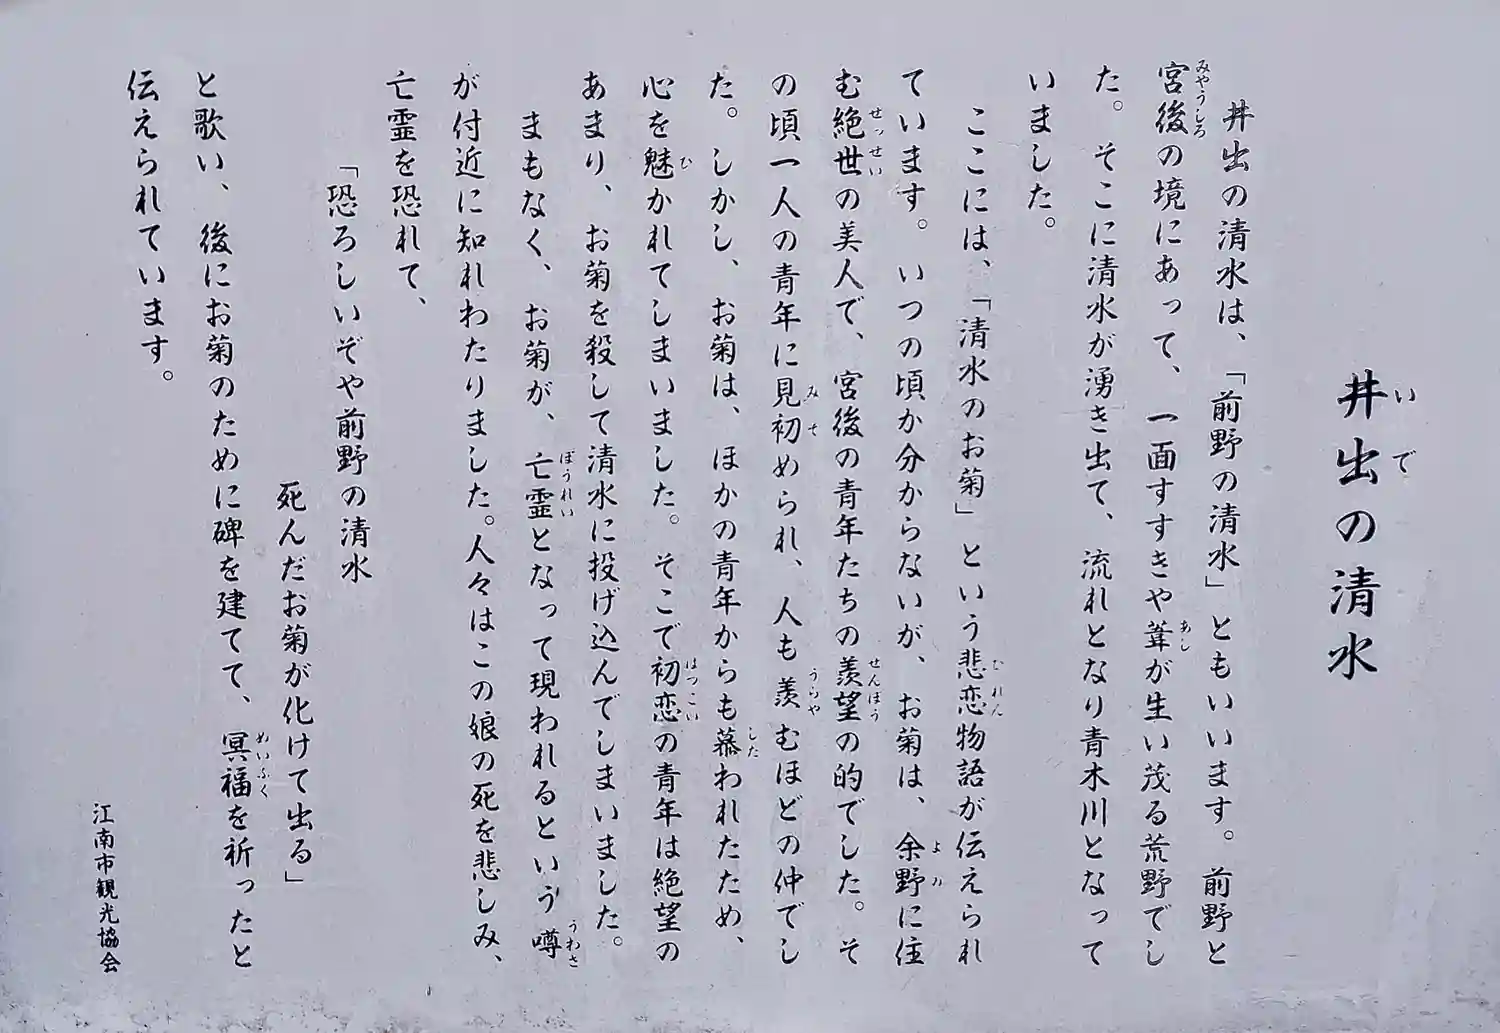 井出の清水
井出の清水は、「前野の清水」ともいいます。前野と
宮後の境にあって、一面すすきや葦が生い茂る荒野でし
た。そこに清水が湧き出て、流れとなり青木川となって
いました。
ここには、「清水のお菊」という悲恋物語が伝えられ
ています。いつの頃か分からないが、お菊は、余野に住
む絶世の美人で、宮後の青年たちの羨望の的でした。そ
の頃一人の青年に見初められ、人も羨むほどの仲でし
た。しかし、お菊は、ほかの青年からも慕われたため、
心を魅かれてしまいました。そこで初恋の青年は絶望の
あまり、お菊を殺して清水に投げ込んでしまいました。
まもなく、お菊が、亡霊となって現われるという噂
が付近に知れわたりました。人々はこの娘の死を悲しみ、
亡霊を恐れて、
「恐ろしいぞや前野の清水
死んだお菊が化けて出る」
と歌い、後にお菊のために碑を建てて、冥福を祈ったと
伝えられています。
江南市観光協会